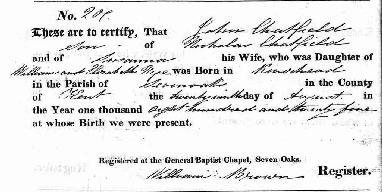 No. 209.
These are to certify, That John Chatfield
Son of Nicholas Chatfield
and of Susanna his Wife, who was Daughter of
William and Elizabeth Nye was Born in Riverhead
in the Parish of Sevenoaks in the County
of Kent the twenty ninth day of August in
the Year one thousand eight hundred and twenty five
at whose Birth we were present.
Registered at the General Baptist Chapel, Seven Oaks.
William Brown Register.